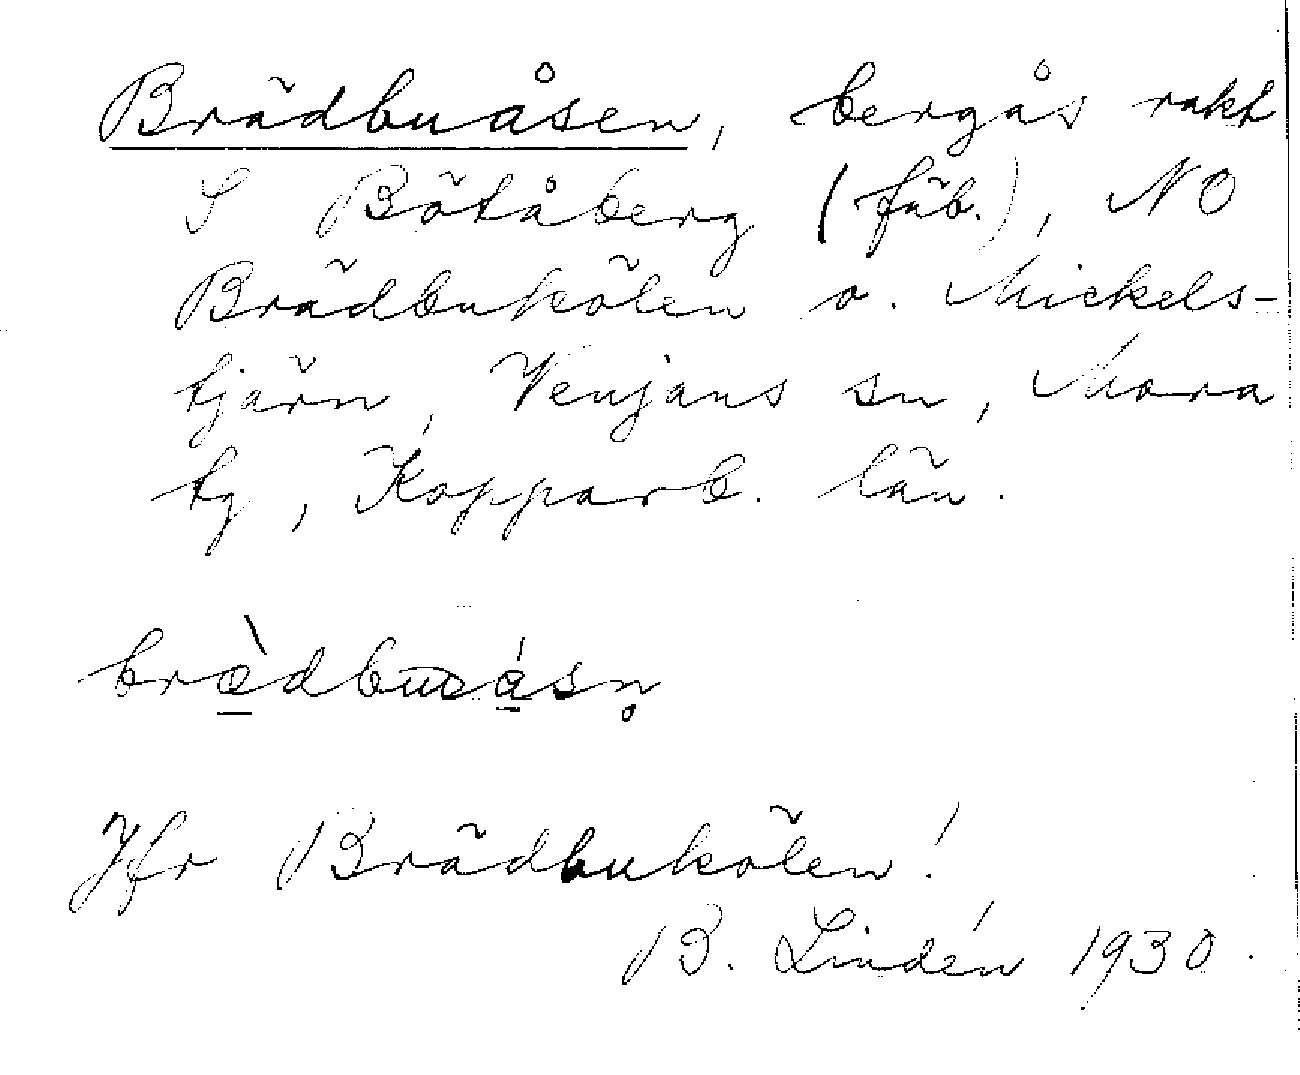 Brädbuåsen, bergås rakt
S Bötåberg (fäb.), NO
Brädbukölen o. Mickels-
tjärn, Venjans sn, Mora
tg, Kopparb. län.
Jfr Brädbukölen!
B. Lindén 1930.